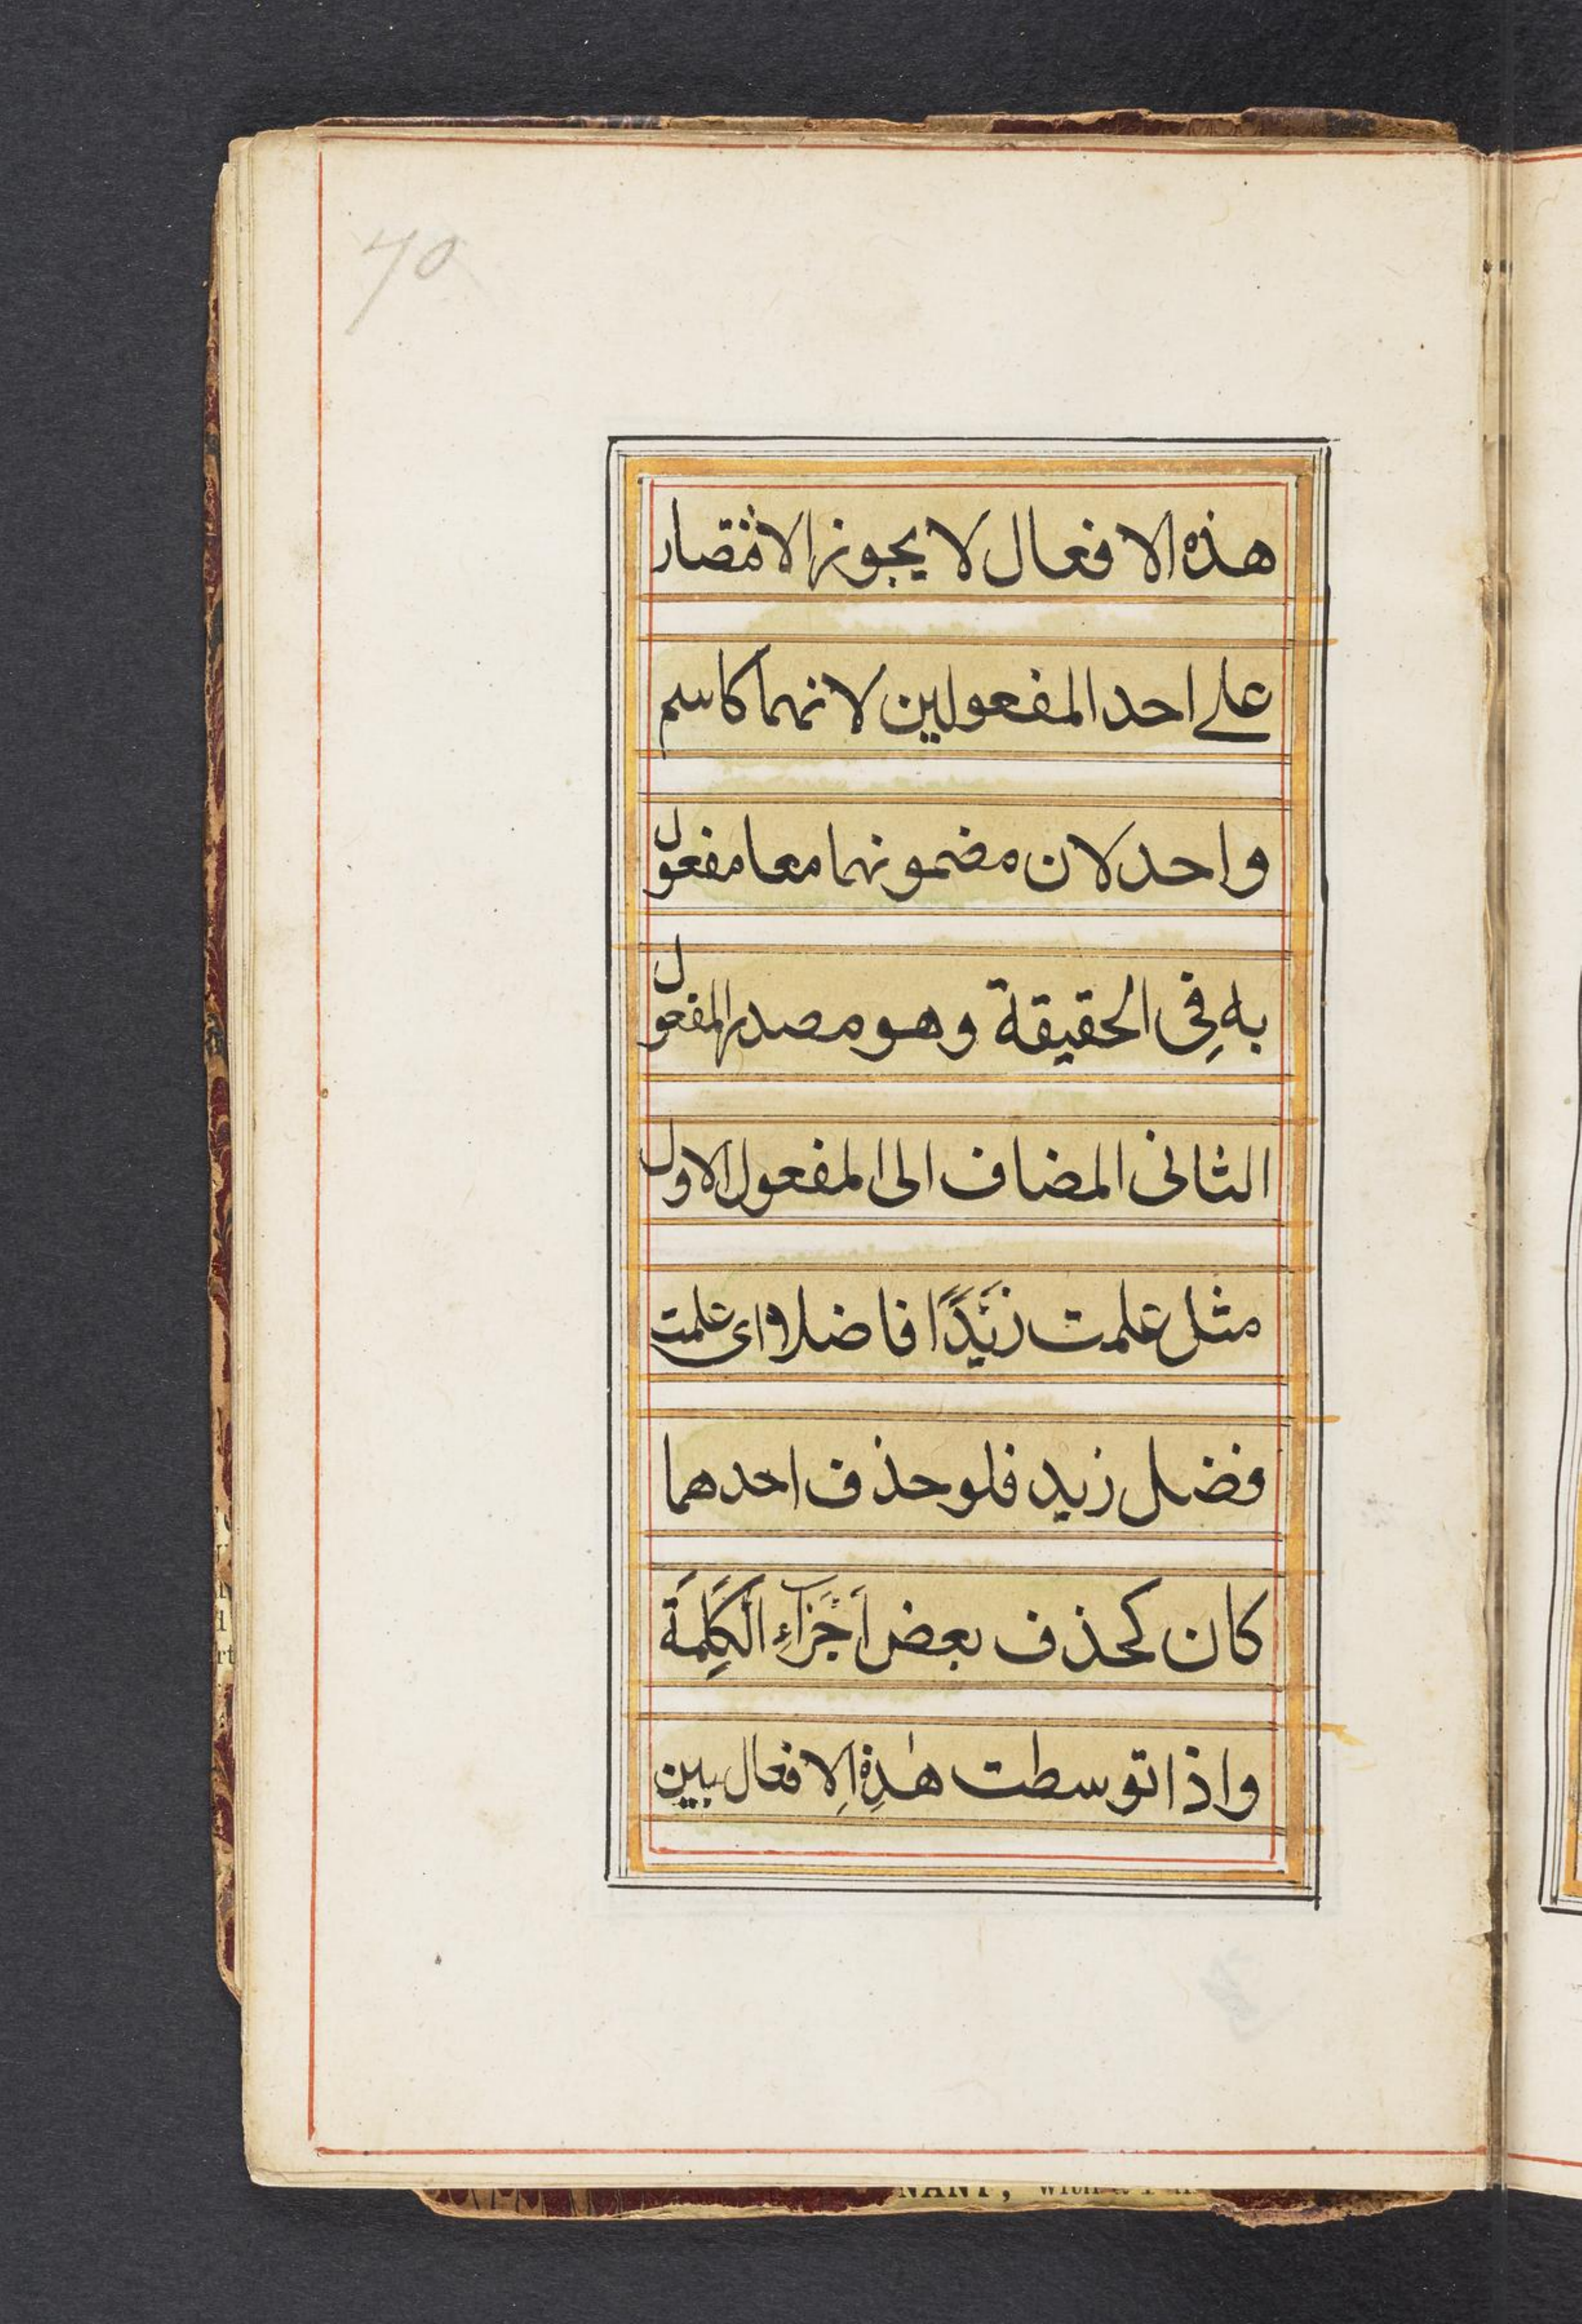 70
هذه الافعال لا يجوز الاقتصار
علے احد المفعولين لانهما كاسم
واحد لان مضمونهما معا مفعول
به فِى الحقيقة وهو مصدر المفعول
الثانى المضاف الى المفعول الاول
مثل علمت زَيْدًا فاضلا اى علمت
فضل زيد فلو حذف احدهما
كان كحذف بعض اَجْزَآءِ الْكَلِمَةَ
واذا توسطت هٰذِهِ الافعال بين
NANT, with